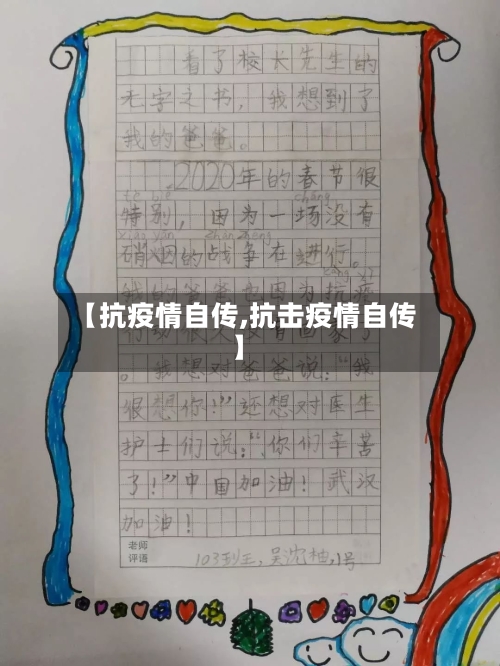 看了校长先生的
无字之书，我想到了
我的爸爸。
2020年的春节很
特别，因为一场没有
硝烟的战争在进行。
【抗疫情自传,抗击疫情自传
】
。我想对爸爸说：“我
很想你！”还想对医生
护士们说：“你们辛苦
了！”中国加油！武汉
加油！
老师
评语